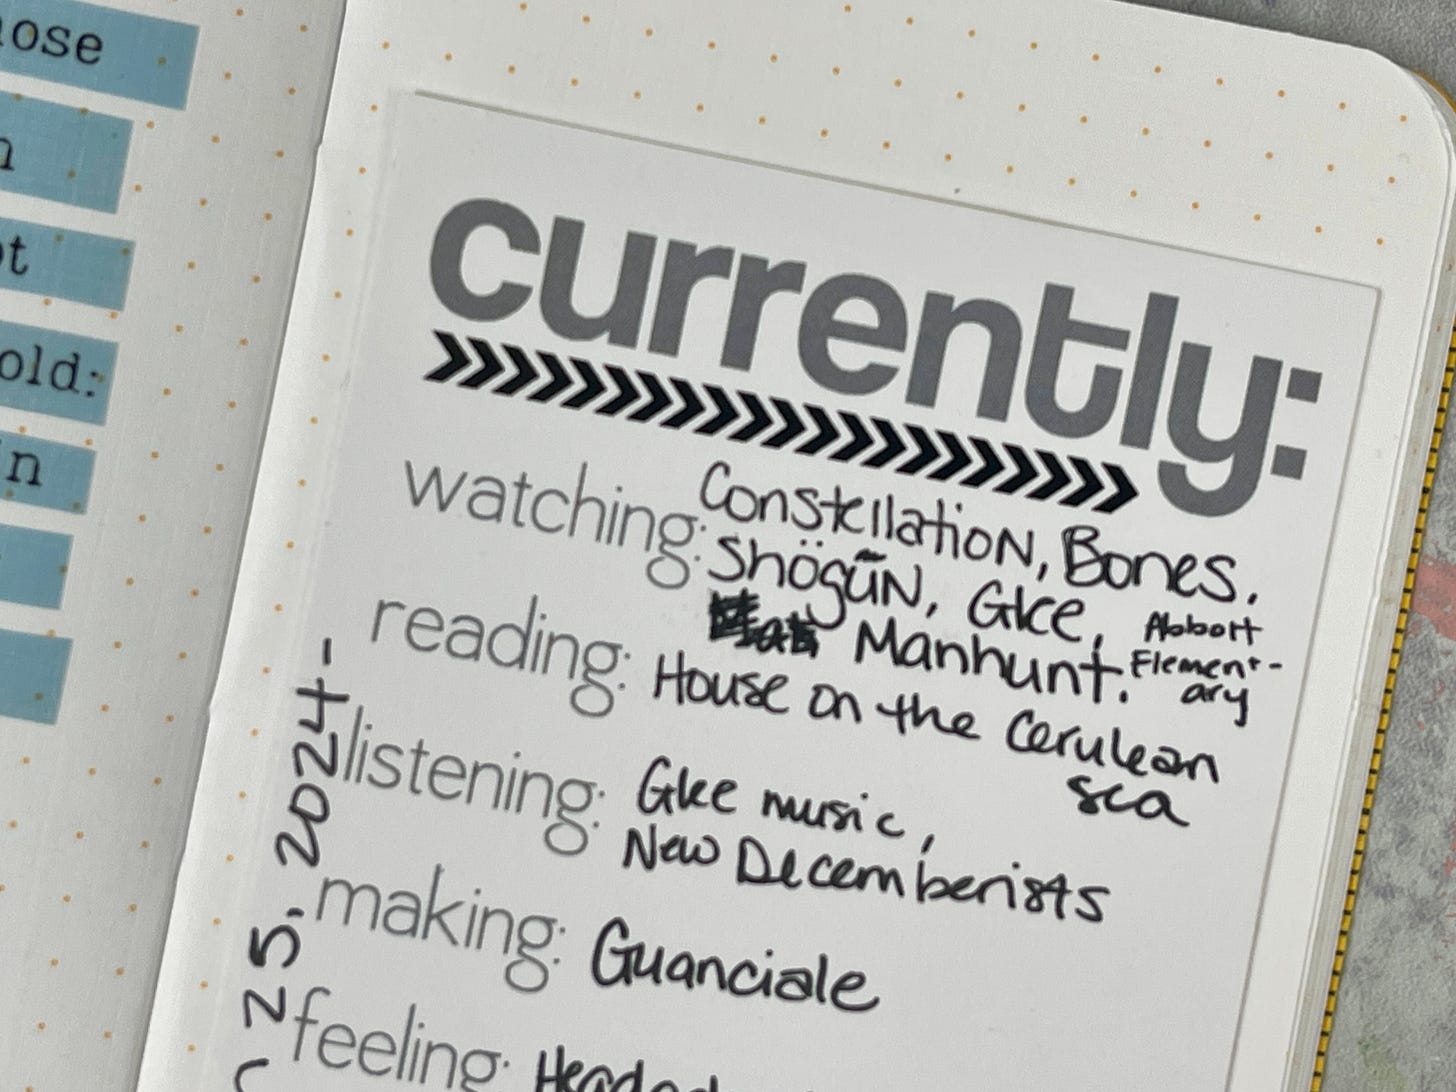 currently:
watching: Constellation, Bones.
Shōgūn, Glee, Abbott
Manhunt. Element-
ary
reading: House on the Cerulean
sea
listening: Glee music,
New Decemberists
making: Guanciale
feeling:
25. 2024-
old:
in